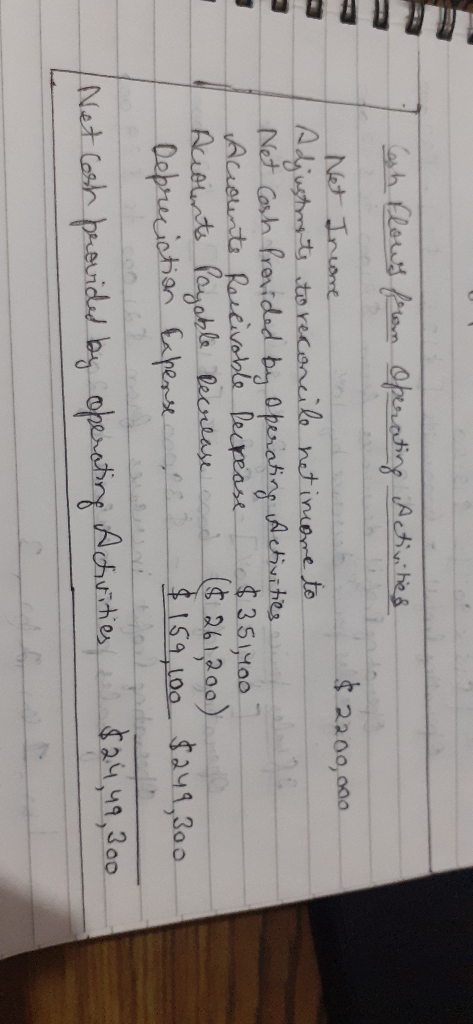 Cash Flows from Operating Activities
Net Income $ 2200,000
Adjustments to reconcile net income to
Net Cash Provided by Operating Activities
Accounts Receivable Decrease $ 351,400
Accounts Payable Decrease ($ 261,200)
Depreciation Expense $ 159,100 $ 249,300
Net Cash provided by operating Activities $ 24,49,300